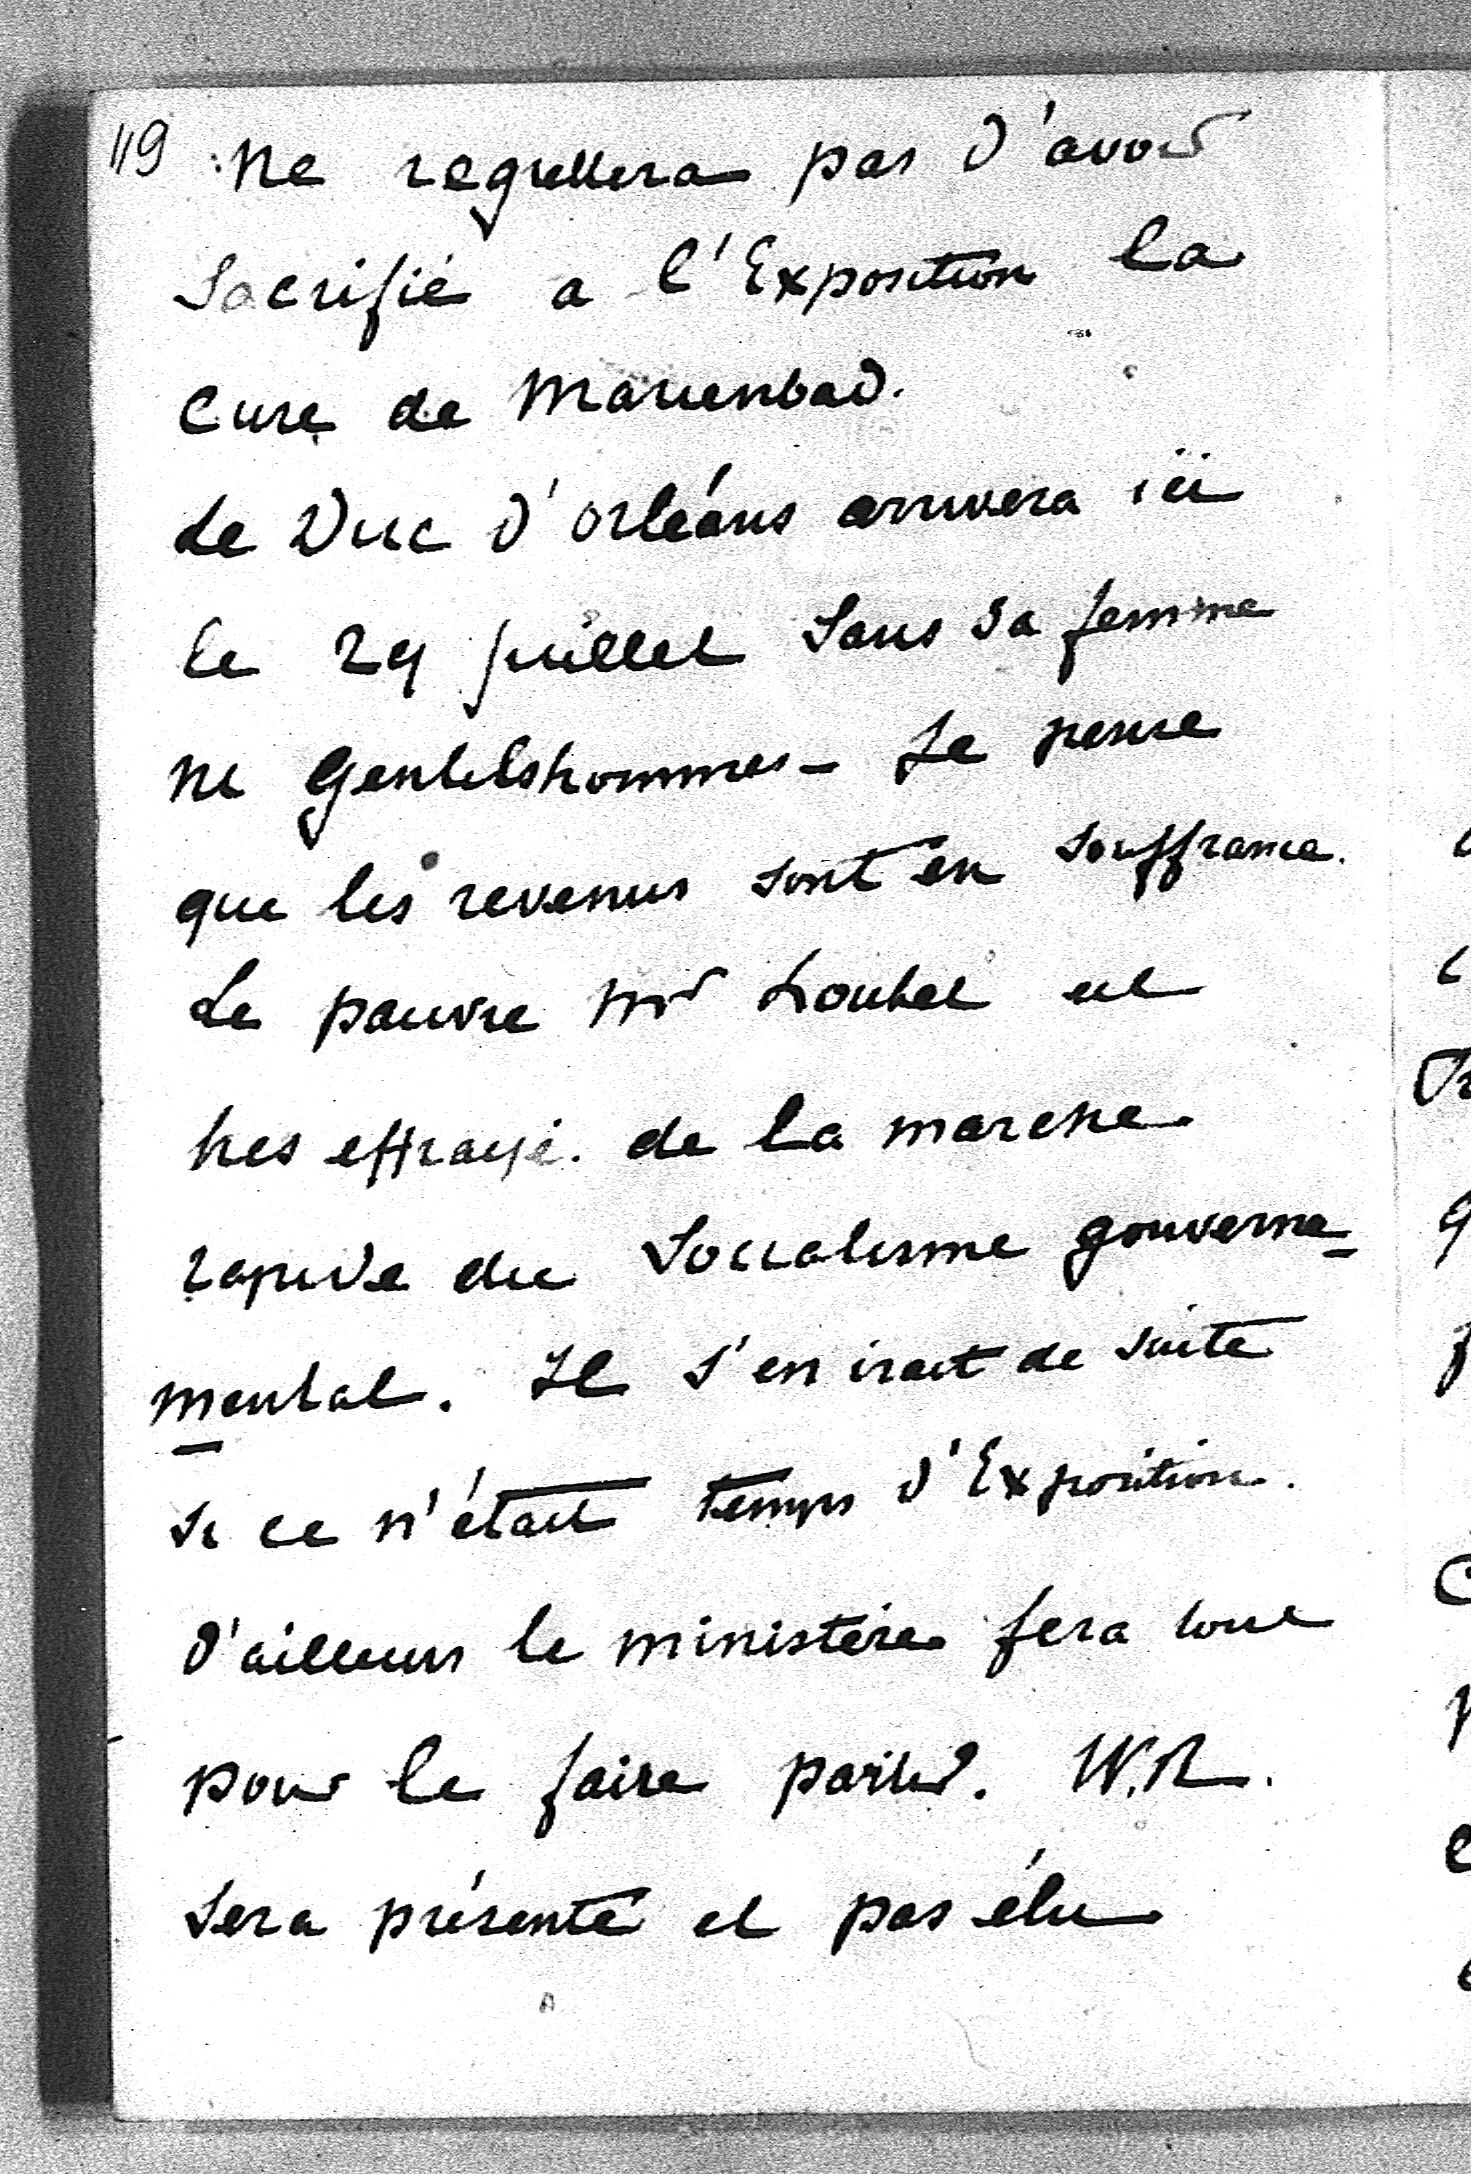 119 ne regrettera pas d'avoir
sacrifié a l'Exposition la
cure de Marienbad.
Le Duc d'Orléans arrivera ici
le 29 juillet sans sa femme
ni Gentilshommes - Je pense
que les revenus sont en souffrance.
Le pauvre Mr Loubet est
tres effrayé de la marche
rapide du Socialisme gouverne-
mental. Il s'en irait de suite
si ce n'était temps d'Exposition.
D'ailleurs le ministère fera tout
pour le faire partir. W.R.
sera présenté et pas élu